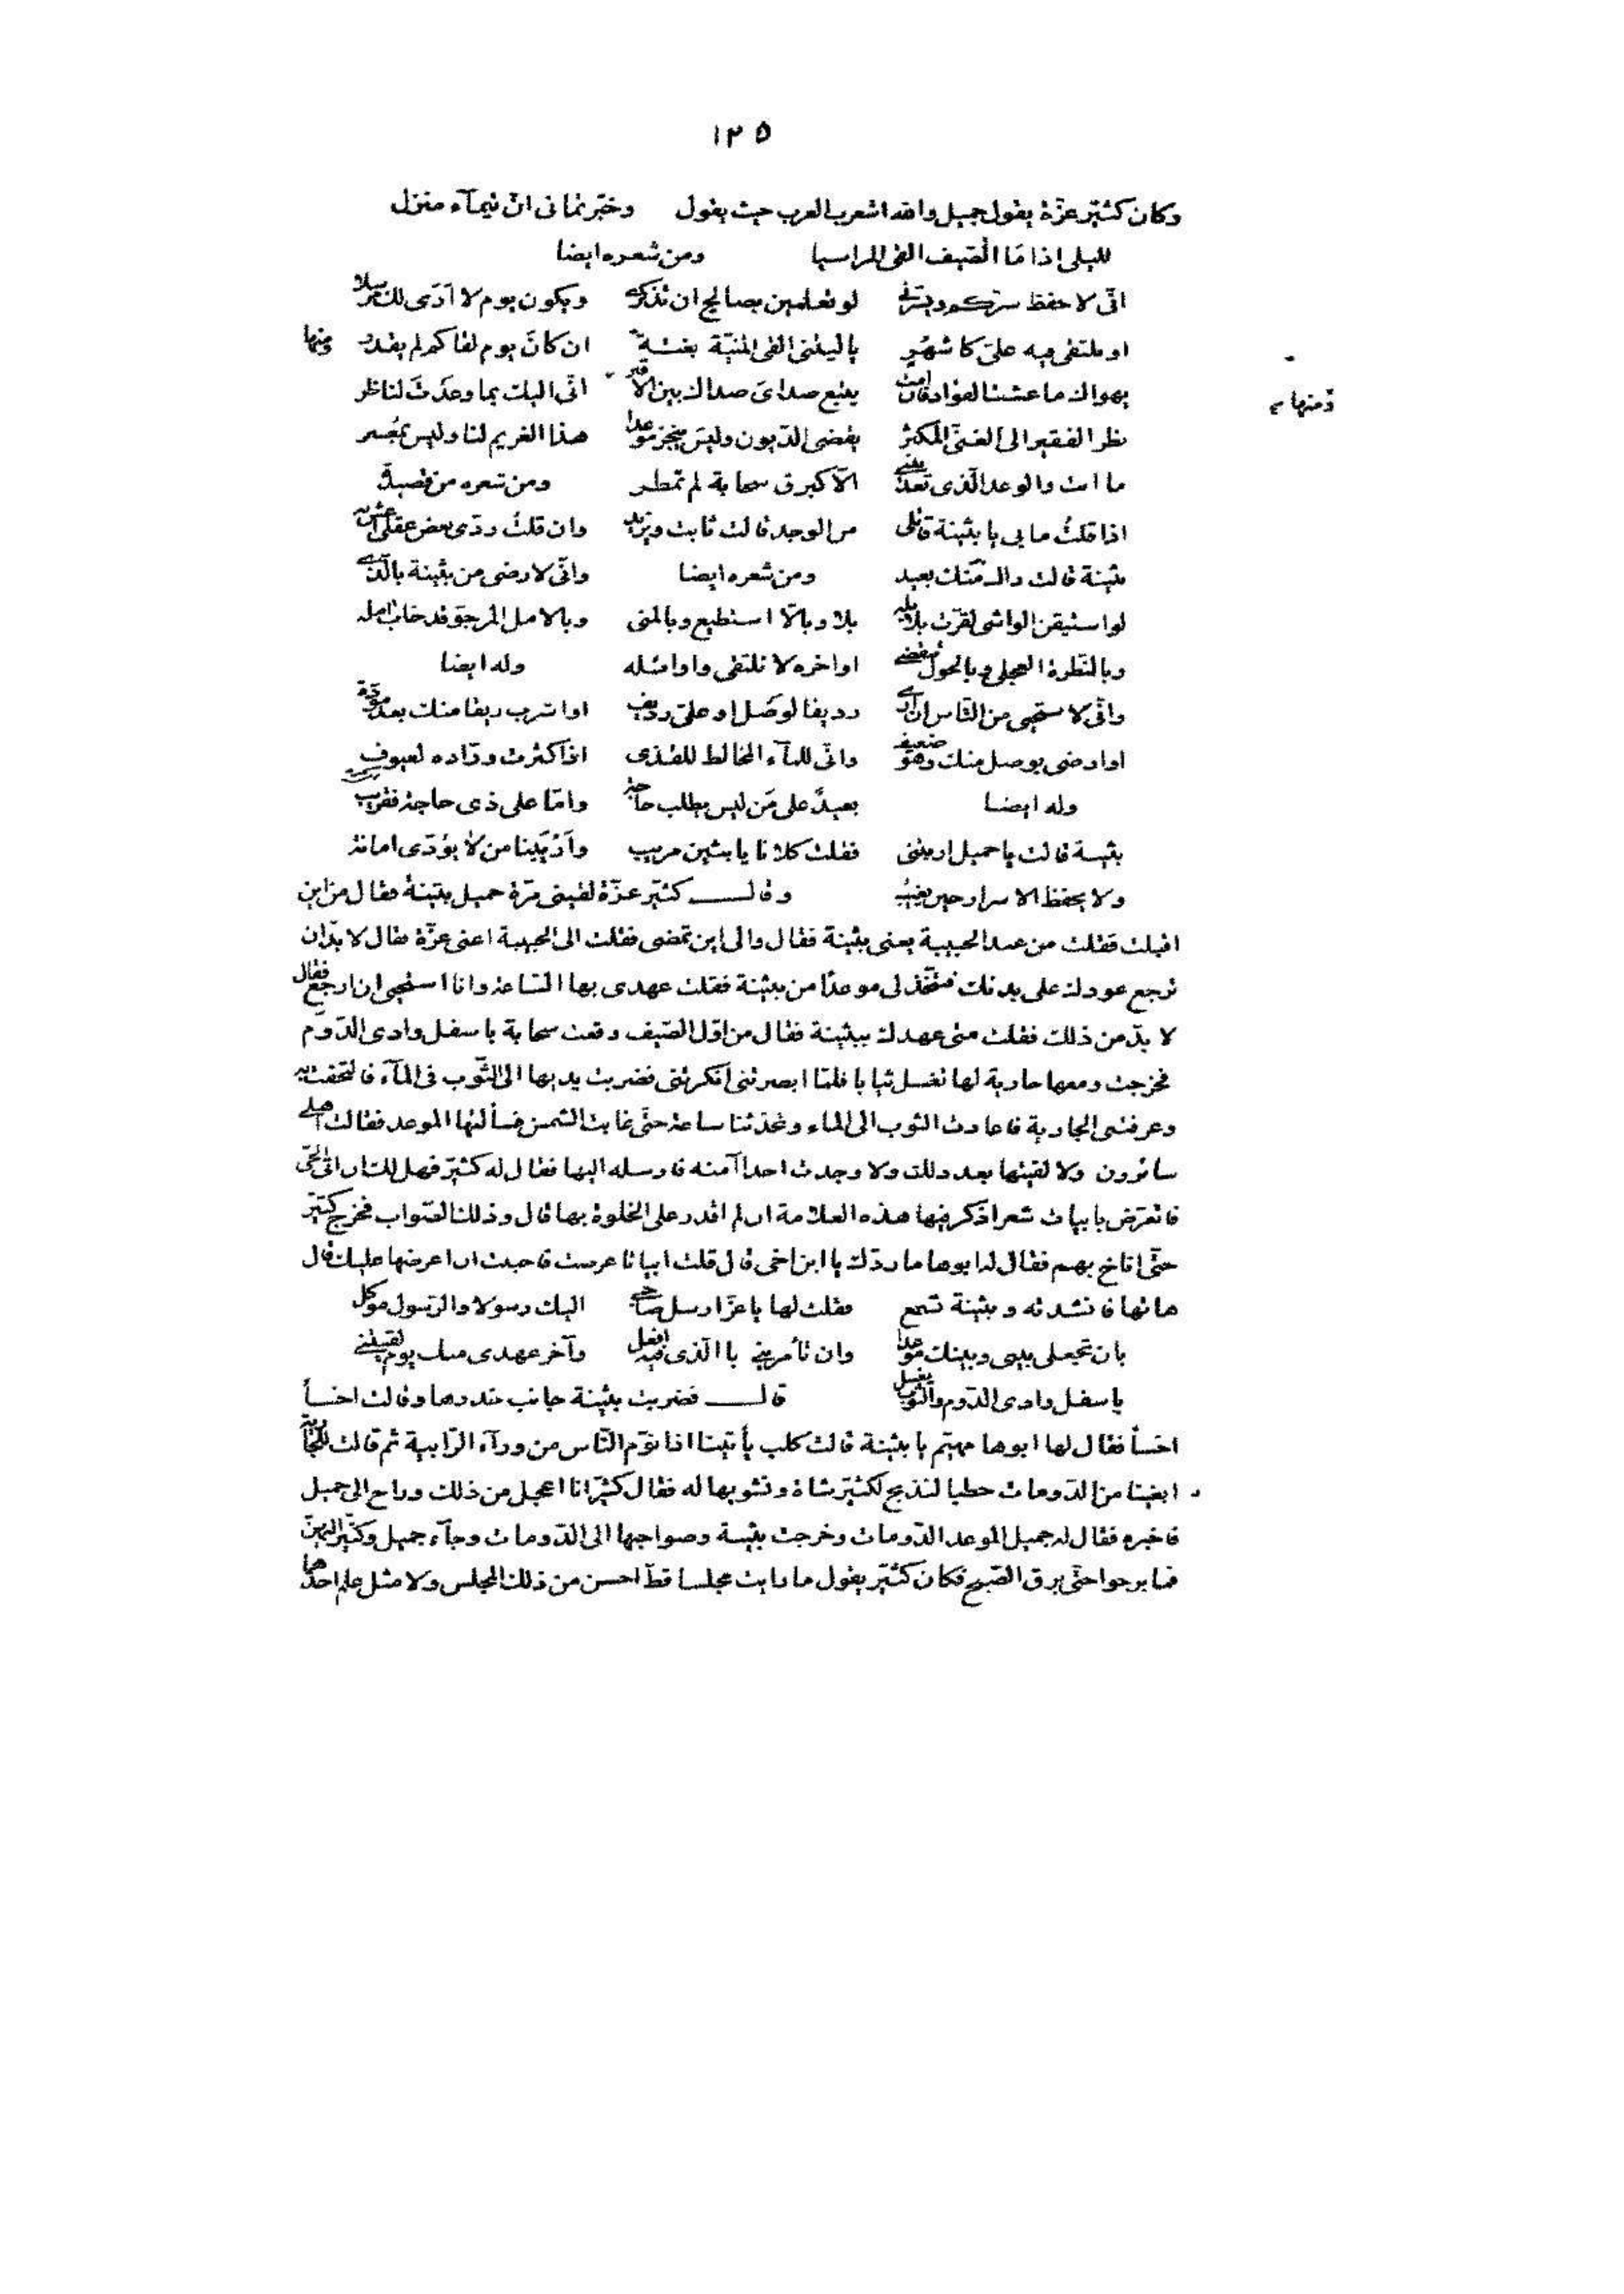 ١٢٥
وكان كثيّر عزّة يقول جميل والله اشعر العرب حيث يقول وخبّرتمانى انّ تيمآء منزل
لليلى اذا مَا الصّيف القى المراسيا ومن شعره ايضا
انّى لاحفظ سرّكم ويسرّنى لو تعلمين بصالح ان تذكرى ويكون يوم لا اَرَى لك مرسلا
او نلتقى فيه علىّ كاشهُرٍ ياليتنى القى المنيّة بغتةً ان كانَ يوم لقاكم لم يقدر ومنها
يهواك ما عشت الفؤاد فان امت يتبع صداىَ صداك بين الاقبر انّى اليك بما وعدتَ لناظر
ومنها
نظر الفقير الى الغنىّ المكثر يقضى الدّيون وليس ينجز موعدا هذا الغريم لنا وليس بمُعسر
ما انت والوعد الّذى تعدينى الّا كبرق سحابة لم تمطر ومن شعره من قصيدة
اذا قلتُ ما بى يا بثينة قاتلى من الوجد قالت ثابت ويزيد وان قلتُ ردّى بعض عقلى اعش به
بثينة قالت ذاك منك بعيد ومن شعره ايضا وانّى لارضى من بثينة بالّذى
لو استيقن الواشى لقرّت بلابله بلا وبالّا استطيع وبالمنى وبالامل المرجوّ قد خاب امله
وبالنّظرة العجلى وبالحول تنقضى اواخره لا نلتقى واوائله وله ايضا
وانّى لاستحيى من النّاس ان ارى رديفا لوصل او علىّ رديف او اشرب ريقا منك بعد مودّة
او ارضى بوصل منك وهو ضعيف وانّى للمآء المخالط للقذى اذا كثرت ورّاده لعيوف
وله ايضا بعيدٌ على مَن ليس يطلب حاجة وامّا على ذى حاجة فقريب
بثينة قالت يا جميل اربتنى فقلت كلانا يا بثين مريب وَاَرْيَبُنا من لا يؤدّى امانة
ولا يحفظ الاسرار حين يغيبُ وقال كثيّر عزّة لقينى مرّة جميل بثينة فقال من اين
اقبلت فقلت من عند الحبيبة يعنى بثينة فقال والى اين تمضى فقلت الى الحبيبة اعنى عزّة فقال لا بدّ ان
ترجع عودك على بدئك فتتّخذ لى موعدًا من بثينة فقلت عهدى بها السّاعة وانا استحيى ان ارجع فقال
لا بدّ من ذلك فقلت متى عهدك ببثينة فقال من اوّل الصّيف وقعت سحابة باسفل وادى الدّوم
فخرجت ومعها جارية لها تغسل ثيابا فلمّا ابصرتنى انكرتنى فضربت يديها الى الثّوب فى المآء فالتحفت به
وعرفتنى الجارية فاعادت الثوب الى الماء وتحدّثنا ساعة حتّى غابت الشمس فسألتها الموعد فقالت اهلى
سائرون ولا لقيتها بعد ذلك ولا وجدت احدا آمنه فارسله اليها فقال له كثيّر فهل لك ان اتى الحىّ
فاتعرّض بابيات شعر اذكر فيها هذه العلامة ان لم اقدر على الخلوة بها قال وذلك الصّواب فخرج كثيّر
حتّى اناخ بهم فقال له ابوها ما ردّك يا ابن اخى قال قلت ابياتا عرضت فاحببت ان اعرضها عليك قال
هاتها فانشدته وبثينة تسمع فقلت لها يا عزّ ارسل صاحبى اليك رسولا والرّسول موكّل
بان تجعلى بينى وبينك موعدا وان تأمرينى بالّذى فيه افعل وآخر عهدى منك يوم لقيتنى
باسفل وادى الدّوم والثّوب يغسل قال فضربت بثينة جانب خدرها وقالت اخسأ
اخسأ فقال لها ابوها مهيم يا بثينة قالت كلب يأتينا اذا نوّم النّاس من ورآء الرّابية ثم قالت للجارية
ابغينا من الدّومات حطبا لنذبح لكثيّر شاة ونشويها له فقال كثيّر انا اعجل من ذلك وراح الى جميل
فاخبره فقال له جميل الموعد الدّومات وخرجت بثينة وصواحبها الى الدّومات وجآء جميل وكثيّر اليهنّ
فما برحوا حتّى برق الصّبح فكان كثيّر يقول ما رايت مجلسا قطّ احسن من ذلك المجلس ولا مثل علم احدهما